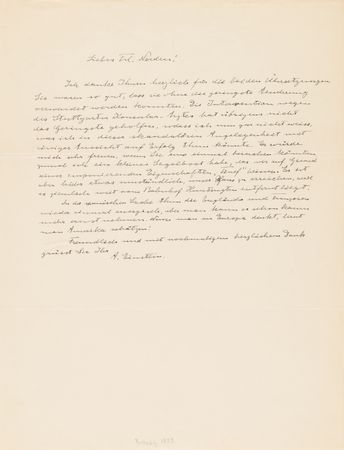 Liebes Frl. Norden!
Ich danke Ihnen herzlich für die beiden Übersetzungen
Sie waren so gut, dass sie ohne die geringste Aenderung
verwendet werden konnten. Die Intervention wegen
des Stuttgarter Konsular- hat übrigens nicht
das Geringste geholfen, sodass ich nun gar nicht weiss,
was ich in dieser skandalösen Angelegenheit mit
einiger Aussicht auf Erfolg thun könnte. Es würde
mich sehr freuen, wenn Sie uns einmal besuchen könnten
zumal wir ein kleines Segelboot habe, das wir auf Grund
seiner Eigenschaften taufen. Es ist
aber leider etwas umständlich, unser Haus zu erreichen, weil
es ziemlich weit vom Bahnhof Huntington entfernt liegt.
In der spanischen Sache thun die Engländer und Franzosen
wieder einmal energisch, aber man kann es schon kaum
mehr ernst nehmen. Wenn man an Europa denkt, lernt
man Amerika schätzen!
Freundlich und mit nochmaligem herzlichem Dank
grüsst Sie Ihr
A. Einstein.